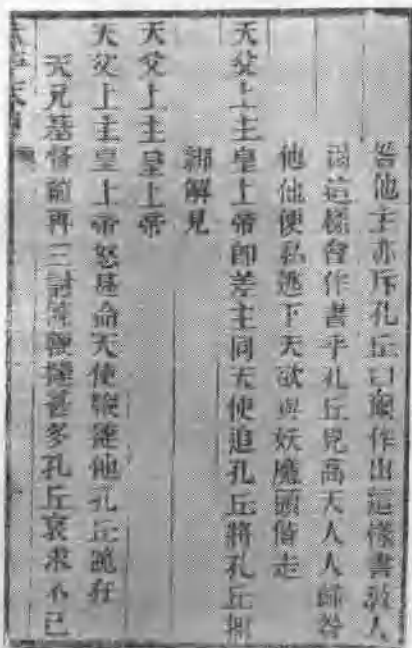 咎他主亦斥孔丘曰爾作出這樣書教人
爾這樣會作書乎孔丘見高天人人歸咎
他他便私逃下天欲與妖魔頭偕走
天父上主皇上帝即差主同天使追孔丘將孔丘捆
綁解見
天父上主皇上帝
天父上主皇上帝怒甚命天使鞭撻他孔丘跪在
天兄基督前再三討饒鞭撻甚多孔丘哀求不已